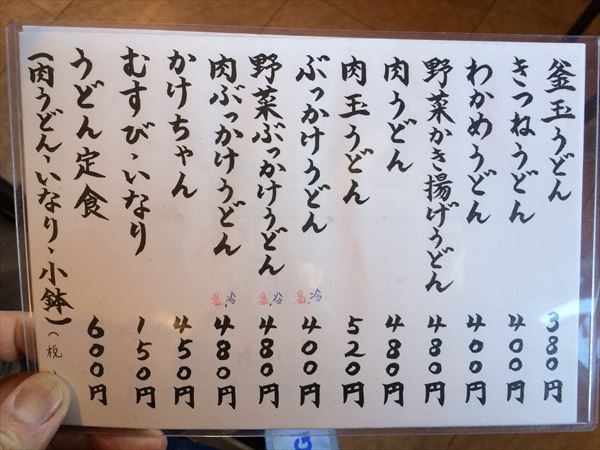 釜玉うどん 380円
きつねうどん 400円
わかめうどん 400円
野菜かき揚げうどん 480円
肉うどん 480円
肉玉うどん 520円
ぶっかけうどん 温、冷 400円
野菜ぶっかけうどん 温、冷 480円
肉ぶっかけうどん 温、冷 480円
かけちゃん 450円
むすび・いなり 150円
うどん定食 600円
(肉うどん・いなり・小鉢) (税